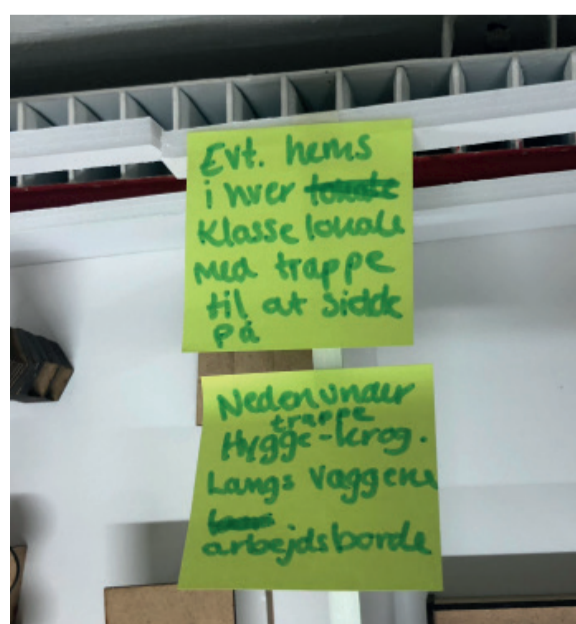 Evt. hems
i hver lokale
Klasselokale
med trappe
til at sidde
på
Nedenunder
trappe
Hygge-krog.
Langs væggene
arbejdsborde